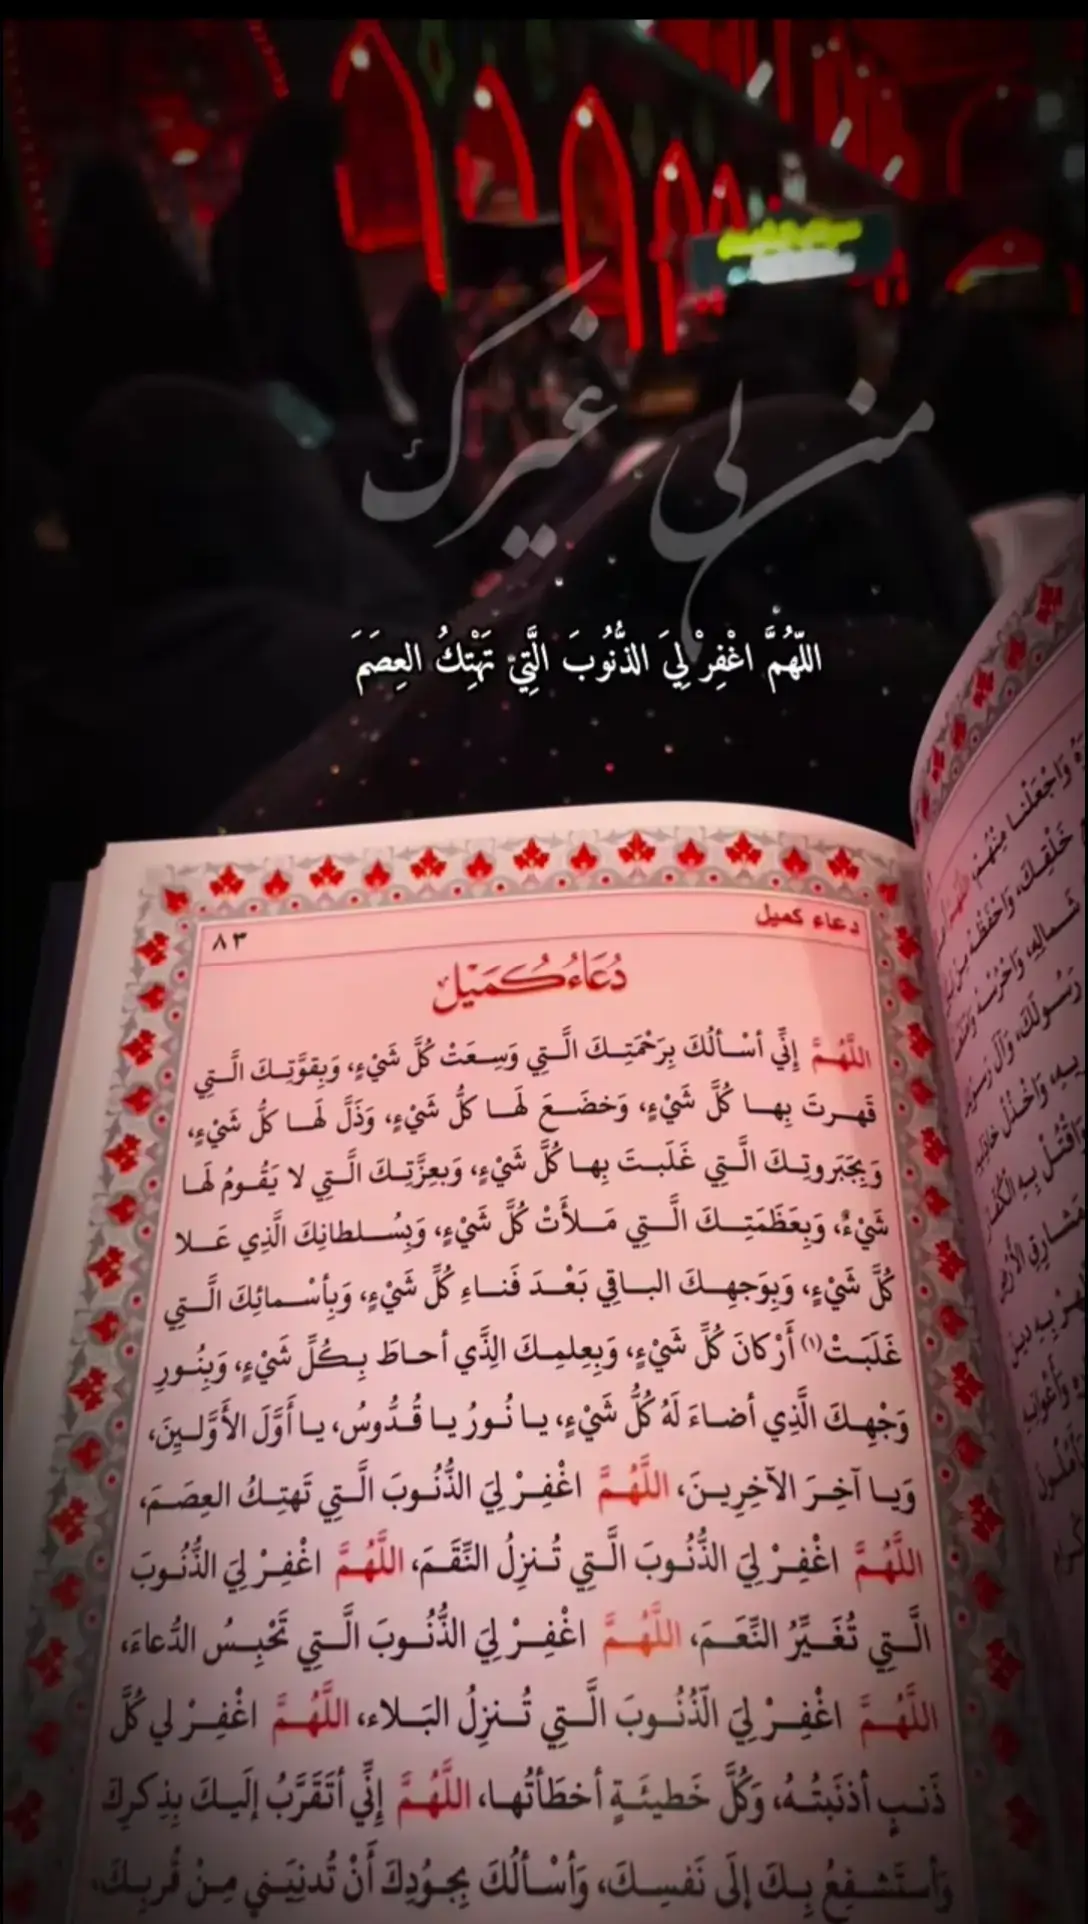 من لي غيرك
اللّهُمَّ اغْفِرْ لِيَ الذُّنُوبَ الَّتِيْ تَهْتِكُ العِصَمَ
دعاء كميل
٨٣
دُعَاءُ كُمَيْل
اللَّهُمَّ إِنِّي أسْألُكَ بِرَحْمَتِكَ الَّتِي وَسِعَتْ كُلَّ شَيْءٍ، وَبِقوَّتِكَ الَّتِي
قَهرتَ بِها كُلَّ شَيْءٍ، وَخضَعَ لَها كلُّ شَيْءٍ، وَذَلَّ لَها كلُّ شَيْءٍ،
وَبِجَبَروتِكَ الَّتِي غَلَبتَ بِها كُلَّ شَيْءٍ، وَبعِزَّتِكَ الَّتِي لا يَقُومُ لَها
شَيْءٌ، وَبِعَظَمَتِكَ الَّتِي مَلأَتْ كُلَّ شَيْءٍ، وَبِسُلطانِكَ الَّذِي عَلا
كُلَّ شَيْءٍ، وَبِوَجهِكَ الباقِي بَعْدَ فَناءِ كُلِّ شَيْءٍ، وَبِأسْمائِكَ الَّتِي
غَلَبَتْ(١) أَرْكانَ كُلِّ شَيْءٍ، وَبِعِلمِكَ الِذَّي أحاطَ بِكُلِّ شَيْءٍ، وَبِنُورِ
وَجْهِكَ الَّذِي أضاءَ لَهُ كُلُّ شَيْءٍ، يا نُورُ يا قُدُّوسُ، يا أَوَّلَ الأَوَّلِينَ،
وَيا آخِرَ الآخِرِينَ، اللَّهُمَّ اغْفِرْ لِيَ الذُّنُوبَ الَّتِي تَهتِكُ العِصَمَ،
اللَّهُمَّ اغْفِرْ لِيَ الذُّنُوبَ الَّتِي تُنزِلُ النِّقَمَ، اللَّهُمَّ اغْفِرْ لِيَ الذُّنُوبَ
الَّتِي تُغَيِّرُ النِّعَمَ، اللَّهُمَّ اغْفِرْ لِيَ الذُّنُوبَ الَّتِي تَحْبِسُ الدُّعاءَ،
اللَّهُمَّ اغْفِرْ لِيَ الّذُنُوبَ الَّتِي تُنزِلُ البَلاء، اللَّهُمَّ اغْفِرْ لي كُلَّ
ذَنبٍ أذنَبتُهُ، وَكُلَّ خَطيئَةٍ أخطَأتُها، اللَّهُمَّ إِنِّي أتَقَرَّبُ إلَيكَ بِذِكرِكَ
وَأستَشفِعُ بِكَ إلَى نَفسِكَ، وَأسْألُكَ بِجُودِكَ أَنْ تُدنِيَنِي مِنْ قُربِكَ،
وَاجْعَلْنا مِنْهُم،
خَلْقِكَ، وَاحْفَظْهُ مِنْ
شمالِهِ، وَاحْرُسْهُ
رَسُولَكَ، وَآلَ رَسُولِ